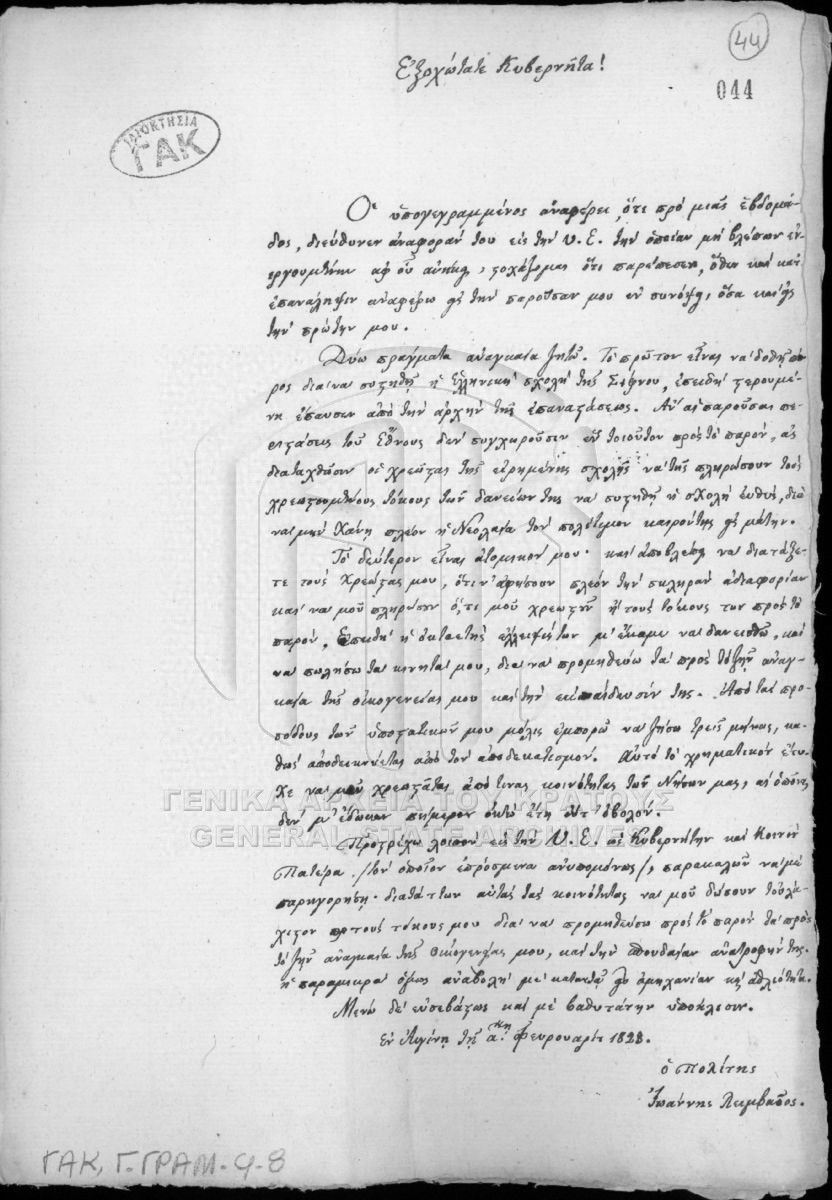 44
Ἐξοχώτατε Κυβερνῆτα!
044
ΙΔΙΟΚΤΗΣΙΑ
ΓΑΚ
Ὁ ὑπογεγραμμένος ἀναφέρει, ὅτι πρὸ μιᾶς ἑβδομά-
δος, διεύθυνεν ἀναφοράν του εἰς τὴν Υ.Ε. τὴν ὁποίαν μὴ βλέπων ἐν-
εργουμένην ἀφ' οὗ , στοχάζομαι ὅτι παρέπεσεν, ὅθεν καὶ κατ'
ἐπανάληψιν ἀναφέρω μὲ τὴν παροῦσαν μου ἐν συνόψει, ὅσα καὶ μὲ
τὴν πρώτην μου.
Δύω πράγματα ἀναγκαῖα ζητῶ. Τὸ πρῶτον εἶναι νὰ δοθῇ πό-
ρος διὰ νὰ συστηθῇ ἡ Ἑλληνικὴ σχολὴ τῆς Σίφνου, ἐπειδὴ στερουμέ-
νη ἔπαυσεν ἀπὸ τὴν ἀρχὴν τῆς ἐπαναστάσεως. Ἂν αἱ παροῦσαι πε-
ριστάσεις τοῦ Ἔθνους δὲν συγχωροῦσιν ἓν τοιοῦτον πρὸς τὸ παρόν, ἂς
διαταχθῶσιν οἱ χρεῶσται τῆς εἰρημένης σχολῆς νὰ τῆς πληρώσουν τοὺς
χρεωστουμένους τόκους τῶν δανείων της νὰ συστηθῇ ἡ σχολὴ εὐθύς, διὰ
νὰ μὴν χάνῃ πλέον ἡ Νεολαία τὸν πολύτιμον καιρόν της εἰς μάτην.
Τὸ δεύτερον εἶναι ἀτομικόν μου· καὶ ἀποβλέπει νὰ διατάξε-
τε τοὺς χρεώστας μου, ὅτι ν' ἀφήσουν πλέον τὴν σκληρὰν ἀδιαφορίαν
καὶ νὰ μοῦ πληρώσουν ὅ,τι μοῦ χρεωστοῦν ἢ τοὺς τόκους των πρὸς τὸ
παρόν. Ἐπειδὴ ἡ ὀκταετὴς ἔλλειψίς των μ' ἔκαμε νὰ δανεισθῶ, καὶ
νὰ πωλήσω τὰ κινητά μου, διὰ νὰ προμηθεύω τὰ πρὸς τὸ ζῆν ἀναγ-
καῖα τῆς οἰκογενείας μου καὶ τὴν ἐκπαίδευσίν της. Ἀπὸ τὰς προ-
σόδους τῶν ὑποστατικῶν μου μόλις ἐμπορῶ νὰ ζήσω τρεῖς μῆνας, κα-
θὼς ἀποδεικνύεται ἀπὸ τὸν ἀποδεκατισμόν. Αὐτὸ τὸ χρηματικὸν ἔτυ-
χε νὰ μοῦ χρεωστῆται ἀπό τινας κοινότητας τῶν Νήσων μας, αἱ ὁποῖαι
δὲν μ' ἔδωκαν σήμερον ὀκτὼ ἔτη οὔτ' ὀβολόν.
ΓΕΝΙΚΑ ΑΡΧΕΙΑ ΤΟΥ ΚΡΑΤΟΥΣ
GENERAL STATE ARCHIVES
Προστρέχω λοιπὸν εἰς τὴν Υ.Ε. ὡς Κυβερνήτην καὶ Κοινὸν
Πατέρα /τὸν ὁποῖον ἐπρόσμενα ἀνυπομόνως/, παρακαλῶν νὰ μὲ
παρηγορήσῃ· διατάττων αὐτὰς τὰς κοινότητας νὰ μοῦ δώσουν τοὐλά-
χιστον τοὺς τόκους μου διὰ νὰ προμηθεύσω πρὸς τὸ παρὸν τὰ πρὸς
τὸ ζῆν ἀναγκαῖα τῆς οἰκογενείας μου, καὶ τὴν σπουδαίαν ἀνατροφήν της.
ἡ παραμικρὰ ὅμως ἀναβολὴ μὲ εἰς ἀμηχανίαν καὶ ἀθλιότητα.
Μένω δὲ εὐσεβάστως καὶ μὲ βαθυτάτην ὑπόκλισιν.
Ἐν Αἰγίνῃ τῇ α.κῃ Φευρουαρίου 1828.
ὁ Πολίτης
Ἰωάννης
ΓΑΚ, Γ. ΓΡΑΜ-φ-8